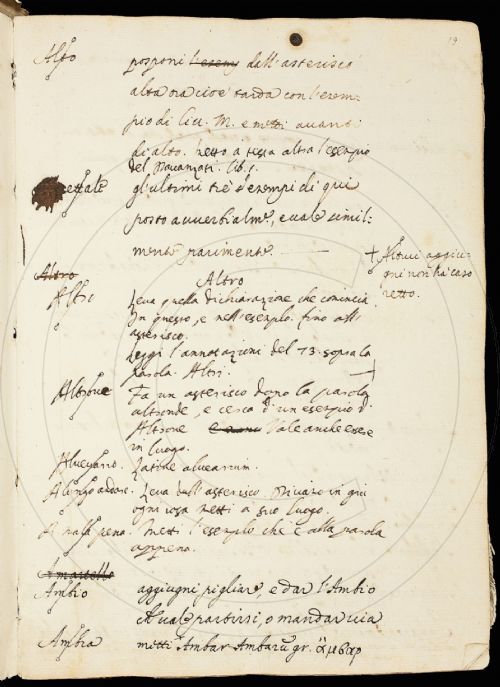 19
Alto posponi l'esemp dall'asterisco
alta ora cioè tarda con l'esem-
pio di Liv. M. e metti avanti
di alto. Netto a testa alta l'esempio
del Davanzati. lib. 1.
gl'ultimi trè esempi di qui
posto avverbialm.e, e vale simil:
mente parimente.
+ Altrui aggiu-
gni non ha caso
retto.
Altro
Altro
Altri Leva quella dichiarazione che comincia
In questo, e nell'esemplo fino all'
asterisco.
Leggi l'annotazioni del 73. sopra la
parola Altri.
Altrove Fa un asterisco dopo la parola
altronde, e cerca d'un esempio d.
Altrove Vale anche esse
in luogo.
Alveario. Latino alvearium.
A lungo andare. Leva dall'asterisco in giù
ogni cosa metti a suo luogo.
A mala pena. Metti l'esemplo che è alla parola
appena.
Amartello
Ambio aggiugni pigliar, e dar l'Ambio
Qual partirsi, o mandar via
Ambra mitti Ambar Ambaru gr.